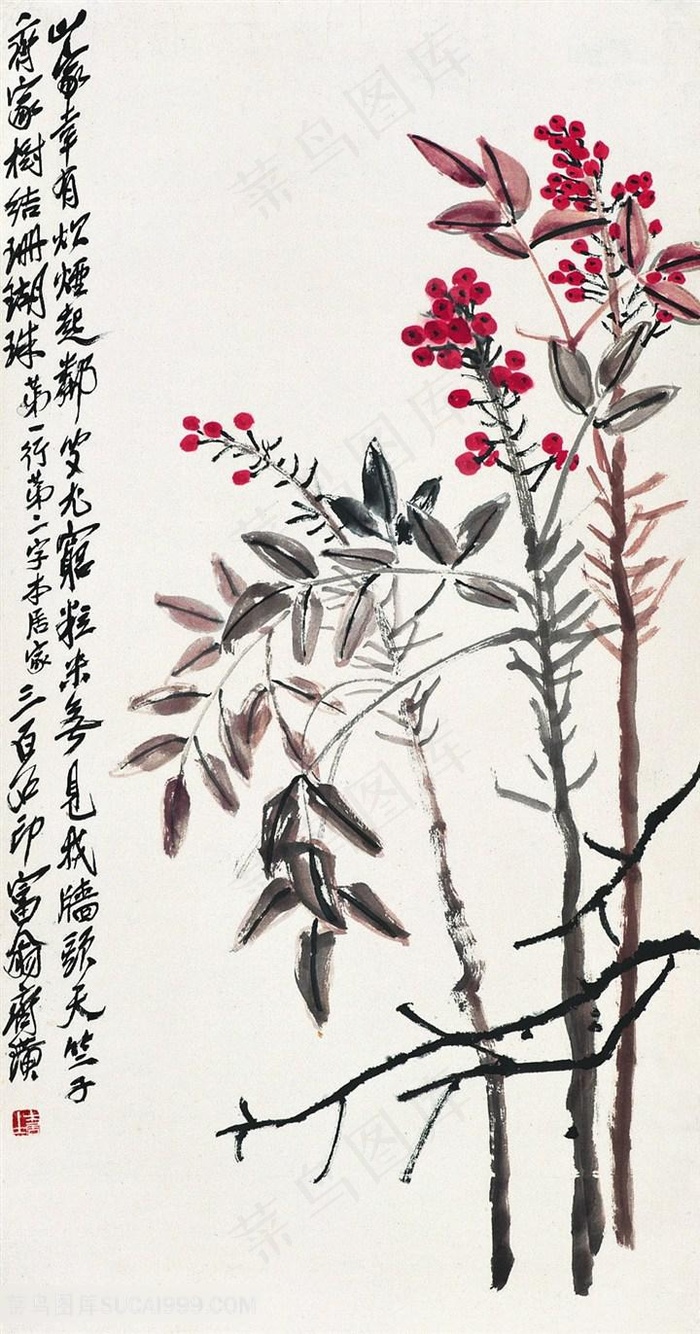 山家幸有炊煙起鄰叟尤窮粒米無見我牆頭天竺子
齊家樹結珊瑚珠第一行第二字本居家三百石印富翁齊璜
菜鸟图库
菜鸟图库
菜鸟图库
菜鸟图库
菜鸟图库SUCAI999.COM